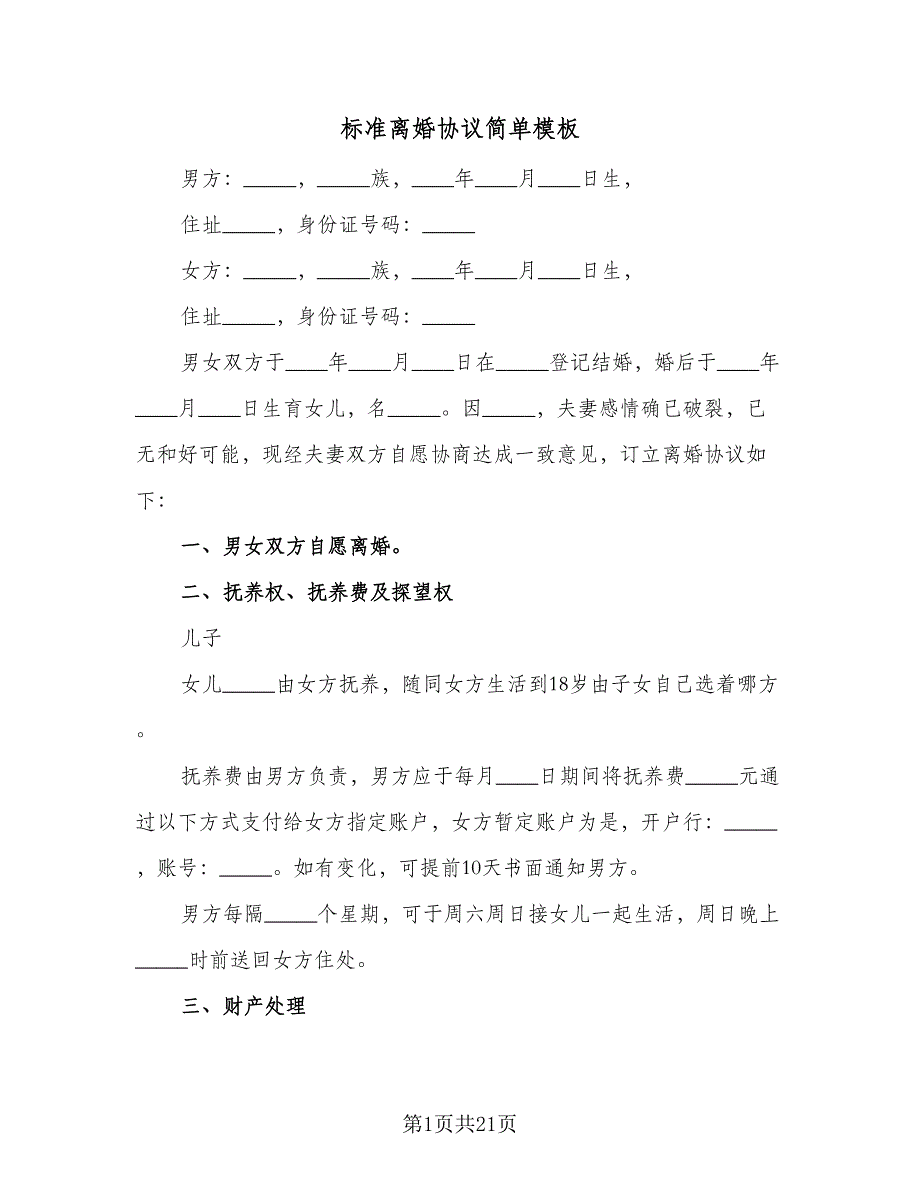 标准离婚协议简单模板
男方：_____，_____族，____年____月____日生，
住址_____，身份证号码：_____
女方：_____，_____族，____年____月____日生，
住址_____，身份证号码：_____
男女双方于____年____月____日在_____登记结婚，婚后于____年
____月____日生育女儿，名_____。因_____，夫妻感情确已破裂，已
无和好可能，现经夫妻双方自愿协商达成一致意见，订立离婚协议如
下：
一、男女双方自愿离婚。
二、抚养权、抚养费及探望权
儿子
女儿_____由女方抚养，随同女方生活到18岁由子女自己选着哪方
。
抚养费由男方负责，男方应于每月____日期间将抚养费_____元通
过以下方式支付给女方指定账户，女方暂定账户为是，开户行：_____
，账号：_____。如有变化，可提前10天书面通知男方。
男方每隔_____个星期，可于周六周日接女儿一起生活，周日晚上
_____时前送回女方住处。
三、财产处理
第1页共21页